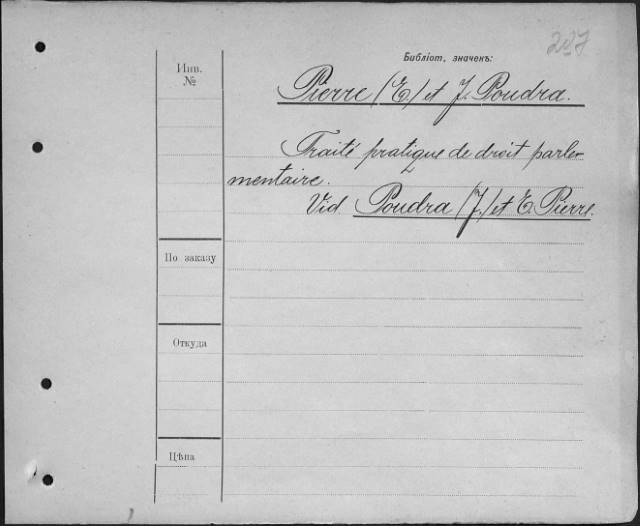 237
Библіот. значекъ:
Инв.
№
Pierre (E.) et J. Poudra.
Traité pratique de droit parle-
mentaire.
Vid. Poudra (J.) et E. Pierre.
По заказу
Откуда
Цѣна